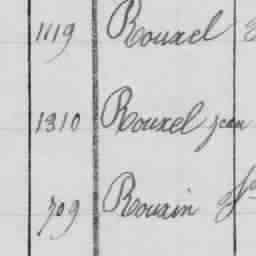 1119 Rouxel
1310 Rouxel jean
709 Rouxin